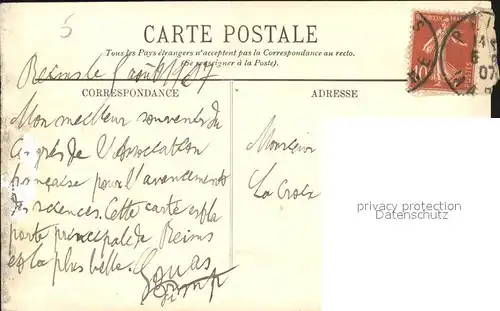 5
CARTE POSTALE
Tous les Pays étrangers n'acceptent pas la Correspondance au recto.
(Se renseigner à la Poste).
Reims le août 1907
CORRESPONDANCE
ADRESSE
Mon meilleur souvenir du
Congrès de l'Association
française pour l'avancement
des sciences. Cette carte est la
porte principale de Reims
et la plus belle.
Monsieur
La Croix
privacy protection
Datenschutz